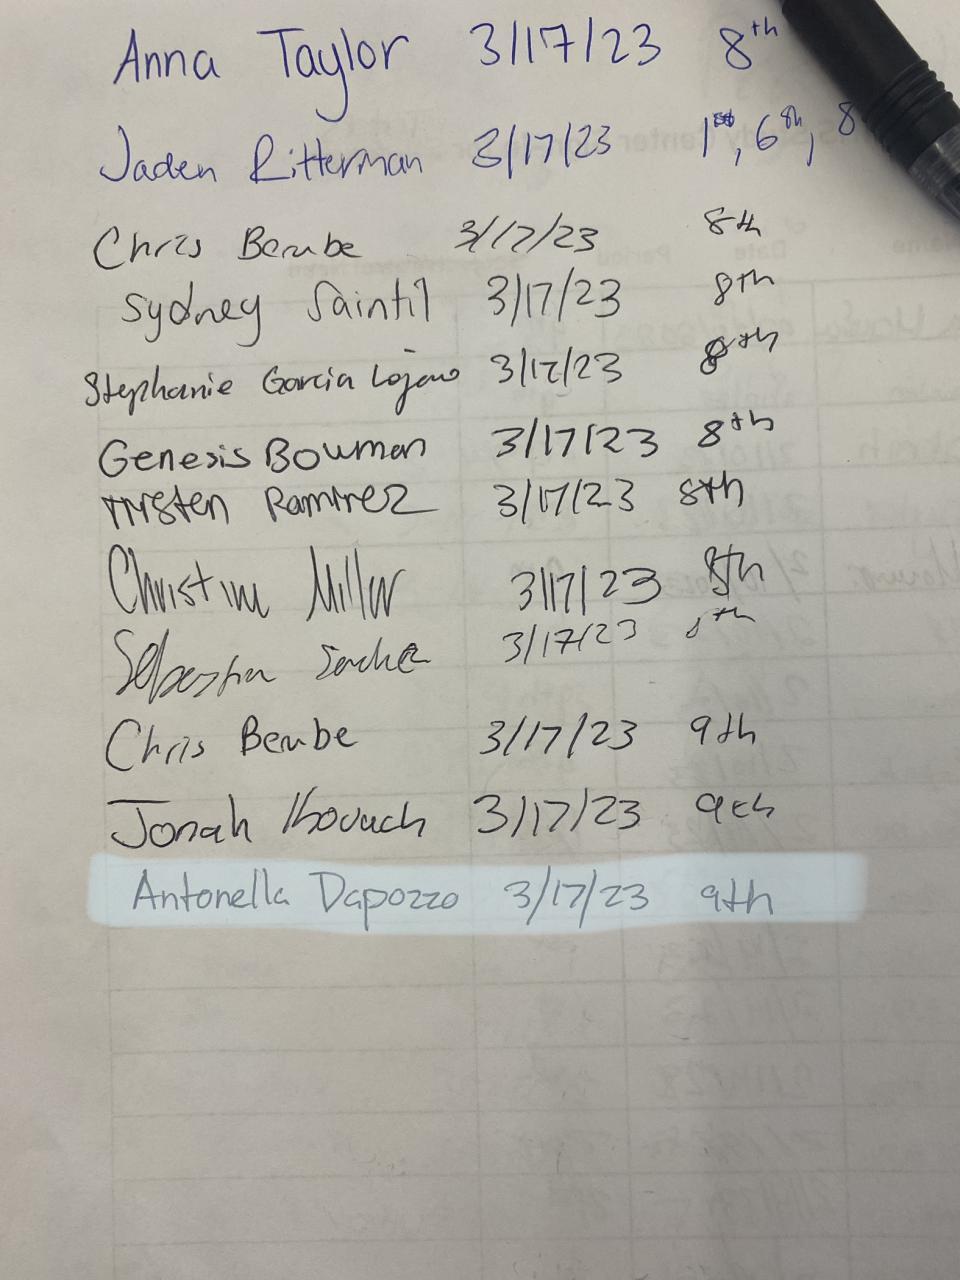 Anna Taylor 3/17/23 8th
Jaden Ritterman 3/17/23 1st, 6th, 8
Chris Berube 3/17/23 8th
Sydney Saintil 3/17/23 8th
Stephanie Garcia Lojano 3/17/23 8th
Genesis Bowman 3/17/23 8th
Trysten Ramirez 3/17/23 8th
Christine Miller 3/17/23 8th
Sebastian 3/17/23 8th
Chris Berube 3/17/23 9th
Jonah 3/17/23 9th
Antonella Dapozzo 3/17/23 9th